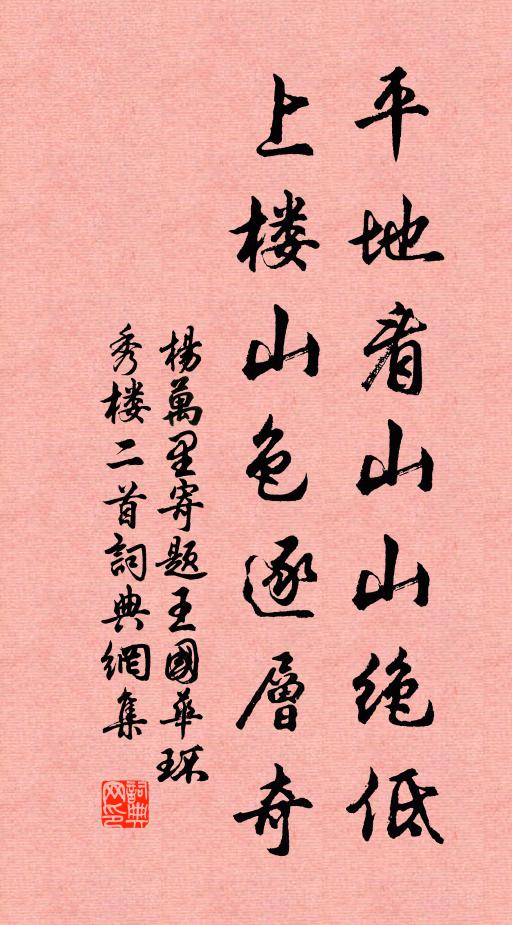 平地看山山绝低
上楼山色逐層奇
楊萬里寄题王國華环
秀楼二首詞典網集
詞典
网印